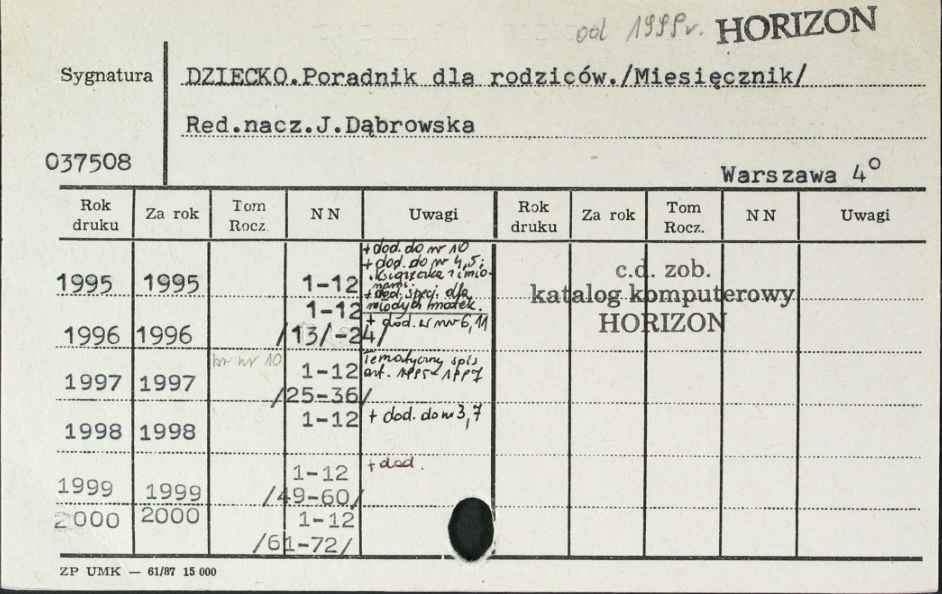 od 1999r. HORIZON
Sygnatura DZIECKO.Poradnik dla rodziców./Miesięcznik/
Red.nacz.J.Dąbrowska
037508
Warszawa 4°
Rok druku Za rok Tom Rocz. NN Uwagi Rok druku Za rok Tom Rocz. NN Uwagi
+ dod. do nr 10
+ dod. do nr 4,5;
Książeczka z imio-
nami.
1995 1995 1-12
+ dod. specj. dla
młodych matek.
1-12
+ dod. w nr 6,11
1996 1996 /13/-24/
c.d. zob.
katalog komputerowy
HORIZON
nr 10
1997 1997 1-12
Tematyczny spis
art. 1995-1997
/25-36/
1998 1998 1-12 + dod. do nr 3,7
+ dod.
1999 1999 1-12
/49-60/
2000 2000 1-12
/61-72/
ZP UMK — 61/87 15 000